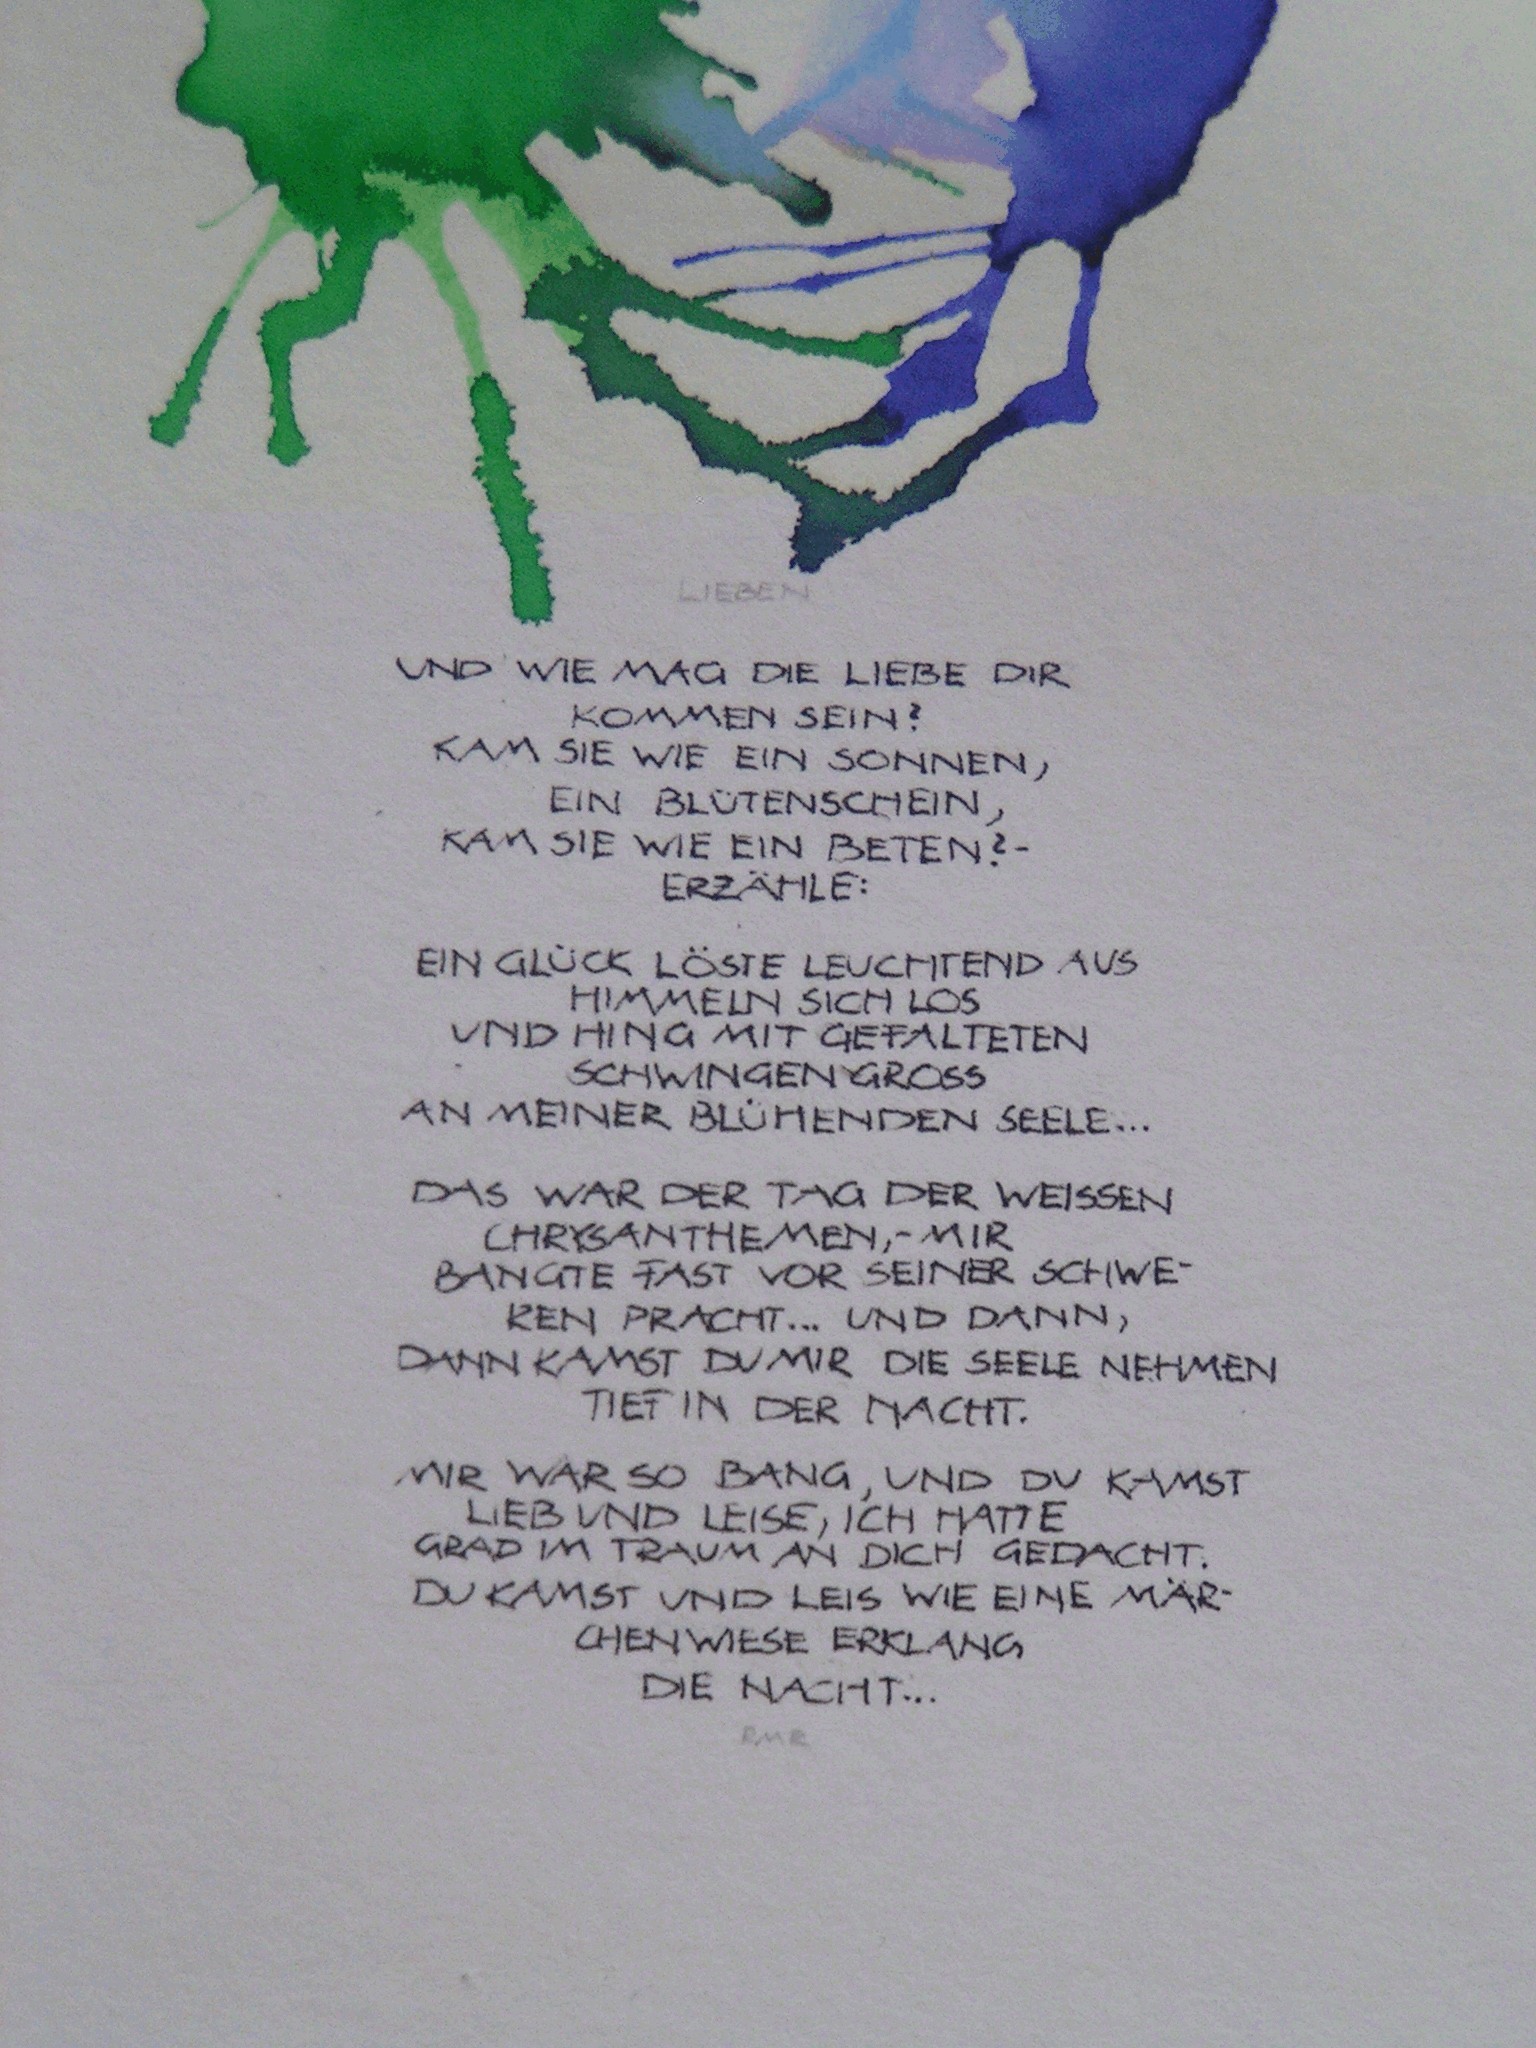 LIEBEN
UND WIE MAG DIE LIEBE DIR
KOMMEN SEIN?
KAM SIE WIE EIN SONNEN,
EIN BLÜTENSCHEIN,
KAM SIE WIE EIN BETEN?-
ERZÄHLE:
EIN GLÜCK LÖSTE LEUCHTEND AUS
HIMMELN SICH LOS
UND HING MIT GEFALTETEN
SCHWINGEN GROSS
AN MEINER BLÜHENDEN SEELE...
DAS WAR DER TAG DER WEISSEN
CHRYSANTHEMEN,- MIR
BANGTE FAST VOR SEINER SCHWE-
REN PRACHT... UND DANN,
DANN KAMST DU MIR DIE SEELE NEHMEN
TIEF IN DER NACHT.
MIR WAR SO BANG, UND DU KAMST
LIEB UND LEISE, ICH HATTE
GRAD IM TRAUM AN DICH GEDACHT.
DU KAMST UND LEIS WIE EINE MÄR-
CHENWIESE ERKLANG
DIE NACHT...
RMR